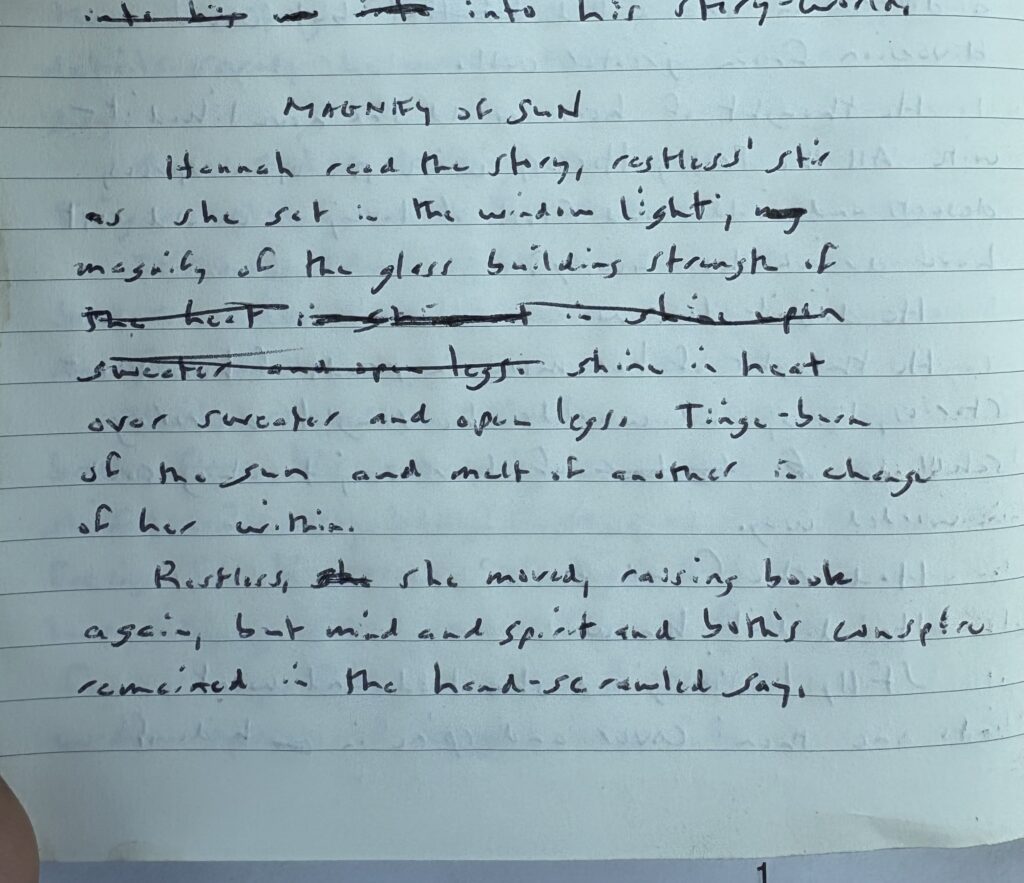 into his story-world.
MAGNIFY OF SUN
Hannah read the story, restless' stir
as she sat in the window light,
magnify of the glass building strength of
the heat in shine open
sweater and open legs. shine in heat
over sweater and open legs. Tinge-burn
of the sun and melt of another in change
of her within.
Restless, she she moved, raising book
again, but mind and spirit and both's conspire
remained in the hand-scrawled say.
1